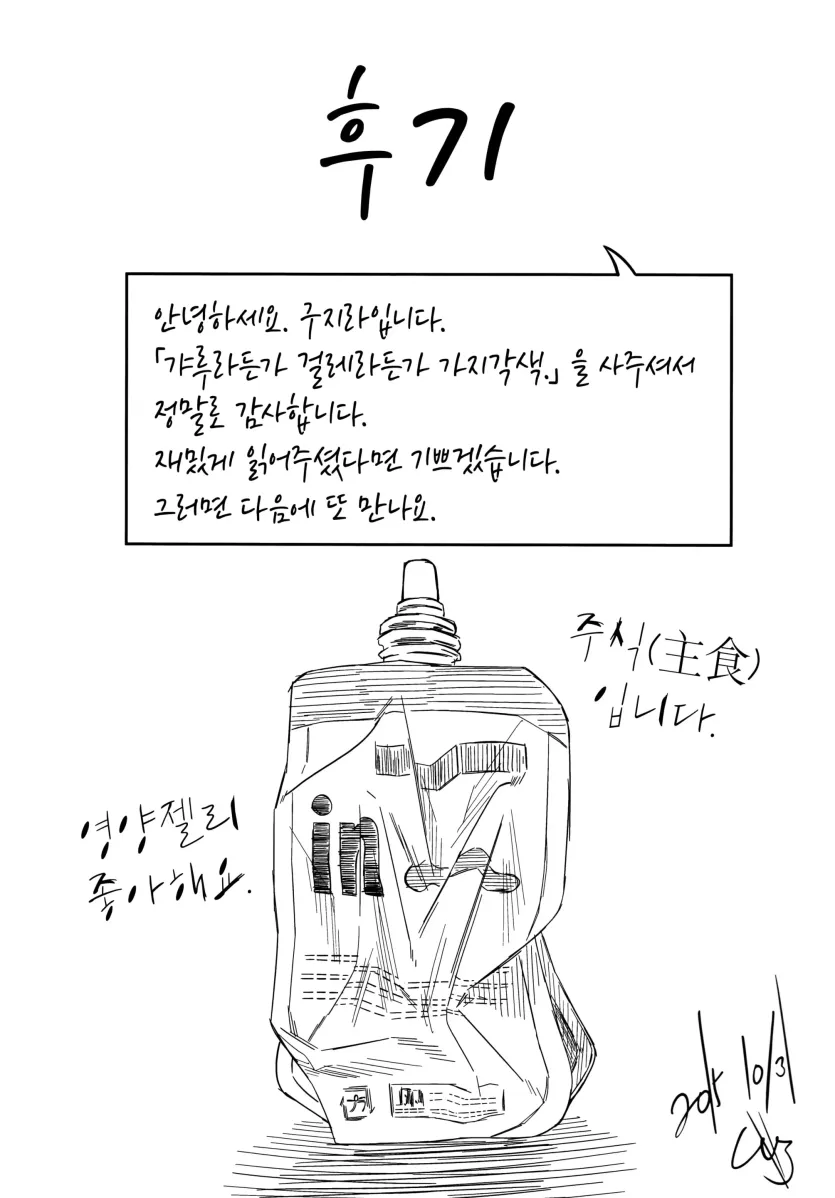 후기
안녕하세요. 구지라입니다.
「갸루라든가 걸레라든가 가지각색.」을 사주셔서
정말로 감사합니다.
재밌게 읽어주셨다면 기쁘겠습니다.
그러면 다음에 또 만나요.
주식(主食)
입니다.
in
영양젤리
좋아해요.
2015 10/31